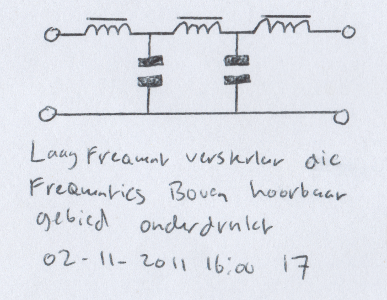 Laag Frequent versterker die
Frequenties Boven hoorbaar
gebied onderdrukt
02-11-2011 16:00 17